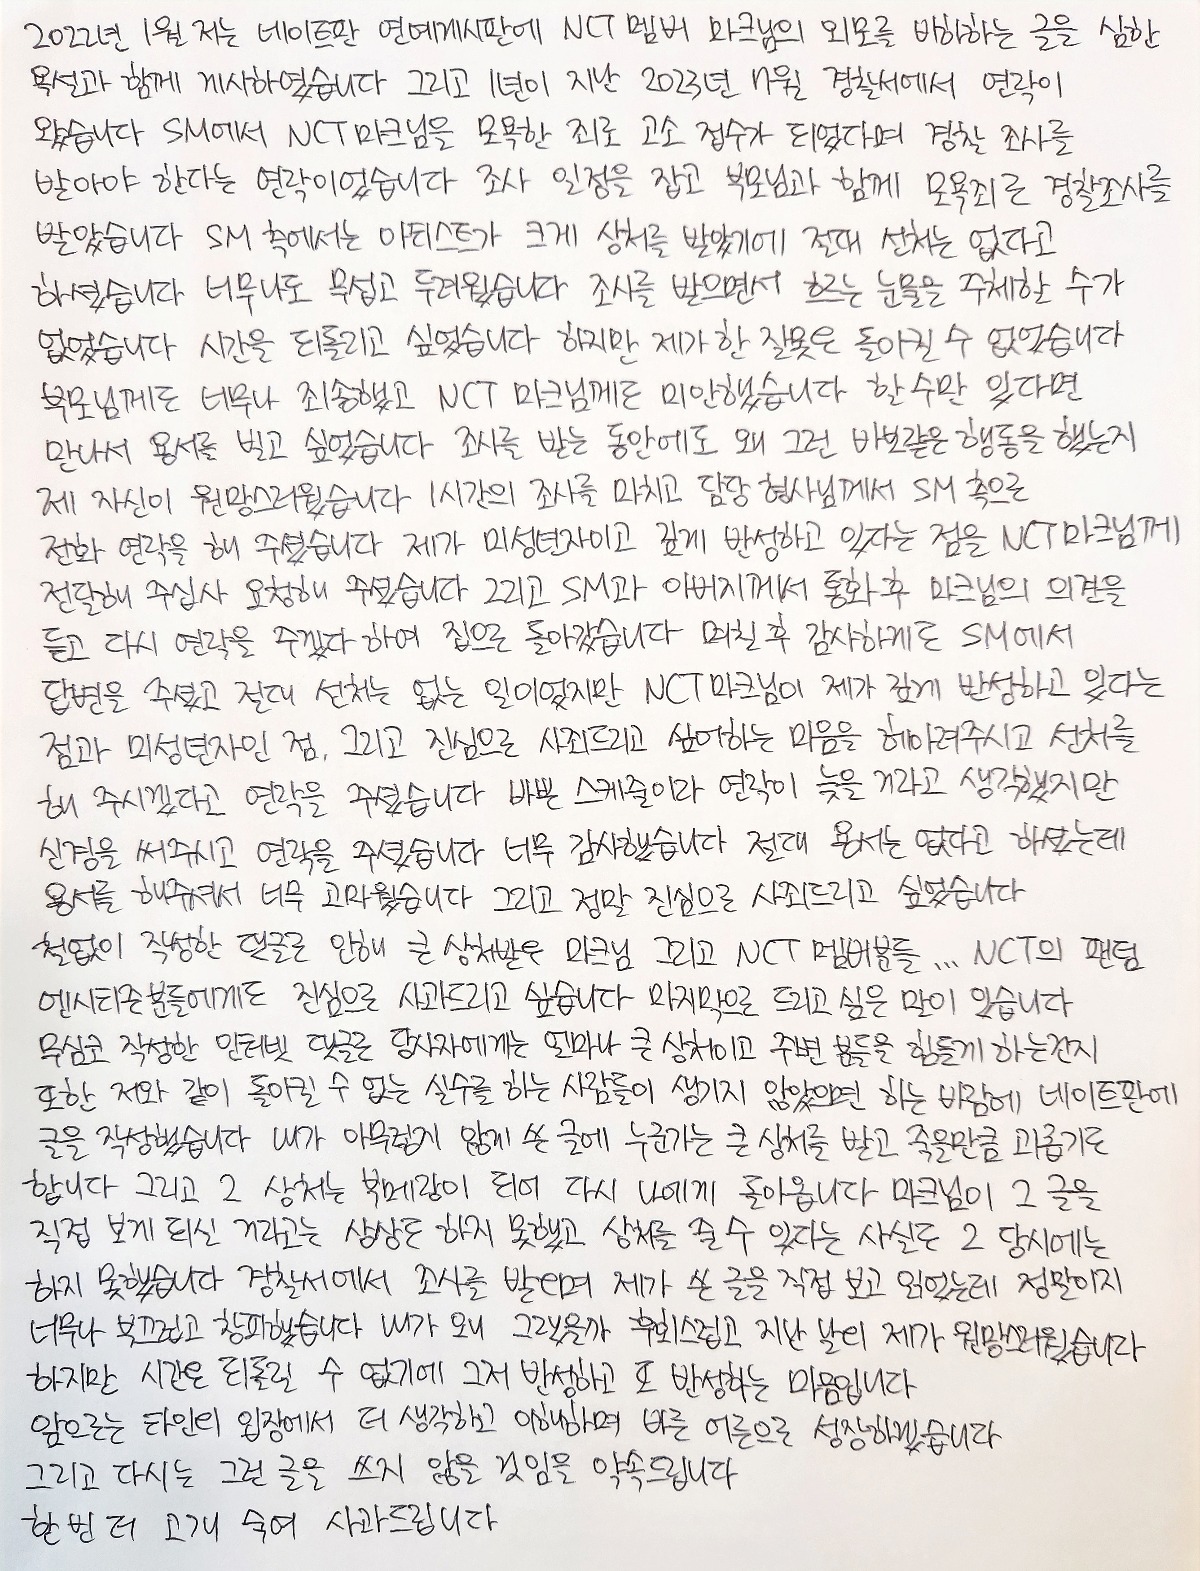 2022년 1월 저는 네이트판 연예게시판에 NCT 멤버 마크님의 외모를 비하하는 글을 심한
욕설과 함께 게시하였습니다 그리고 1년이 지난 2023년 7월 경찰서에서 연락이
왔습니다 SM에서 NCT마크님을 모욕한 죄로 고소 접수가 되었다며 경찰 조사를
받아야 한다는 연락이었습니다 조사 일정을 잡고 부모님과 함께 모욕죄로 경찰조사를
받았습니다 SM 측에서는 아티스트가 크게 상처를 받았기에 절대 선처는 없다고
하셨습니다 너무나도 무섭고 두려웠습니다 조사를 받으면서 흐르는 눈물을 주체할 수가
없었습니다 시간을 되돌리고 싶었습니다 하지만 제가 한 잘못은 돌이킬 수 없었습니다
부모님께도 너무나 죄송했고 NCT 마크님께도 미안했습니다 할 수만 있다면
만나서 용서를 빌고 싶었습니다 조사를 받는 동안에도 왜 그런 바보같은 행동을 했는지
제 자신이 원망스러웠습니다 1시간의 조사를 마치고 담당 형사님께서 SM 측으로
전화 연락을 해 주셨습니다 제가 미성년자이고 깊게 반성하고 있다는 점을 NCT마크님께
전달해 주십사 요청해 주셨습니다 그리고 SM과 아버지께서 통화 후 마크님의 의견을
듣고 다시 연락을 주겠다 하여 집으로 돌아갔습니다 며칠 후 감사하게도 SM에서
답변을 주셨고 절대 선처는 없는 일이었지만 NCT마크님이 제가 깊게 반성하고 있다는
점과 미성년자인 점, 그리고 진심으로 사죄드리고 싶어하는 마음을 헤아려주시고 선처를
해 주시겠다고 연락을 주셨습니다 바쁜 스케줄이라 연락이 늦을 거라고 생각했지만
신경을 써주시고 연락을 주셨습니다 너무 감사했습니다 절대 용서는 없다고 하셨는데
용서를 해주셔서 너무 고마웠습니다 그리고 정말 진심으로 사죄드리고 싶었습니다
철없이 작성한 댓글로 인해 큰 상처받은 마크님 그리고 NCT 멤버분들 ... NCT의 팬덤
엔시티즌분들에게도 진심으로 사과드리고 싶습니다 마지막으로 드리고 싶은 말이 있습니다
무심코 작성한 인터넷 댓글로 당사자에게는 얼마나 큰 상처이고 주변 분들을 힘들게 하는건지
또한 저와 같이 돌이킬 수 없는 실수를 하는 사람들이 생기지 않았으면 하는 바람에 네이트판에
글을 작성했습니다 내가 아무렇지 않게 쓴 글에 누군가는 큰 상처를 받고 죽을만큼 괴롭기도
합니다 그리고 그 상처는 부메랑이 되어 다시 나에게 돌아옵니다 마크님이 그 글을
직접 보게 되신 거라고는 상상도 하지 못했고 상처를 줄 수 있다는 사실도 그 당시에는
하지 못했습니다 경찰서에서 조사를 받으며 제가 쓴 글을 직접 보고 읽었는데 정말이지
너무나 부끄럽고 창피했습니다 내가 왜 그랬을까 후회스럽고 지난 날의 제가 원망스러웠습니다
하지만 시간은 되돌릴 수 없기에 그저 반성하고 또 반성하는 마음입니다
앞으로는 타인의 입장에서 더 생각하고 이해하며 바른 어른으로 성장하겠습니다
그리고 다시는 그런 글을 쓰지 않을 것임을 약속드립니다
한 번 더 고개 숙여 사과드립니다